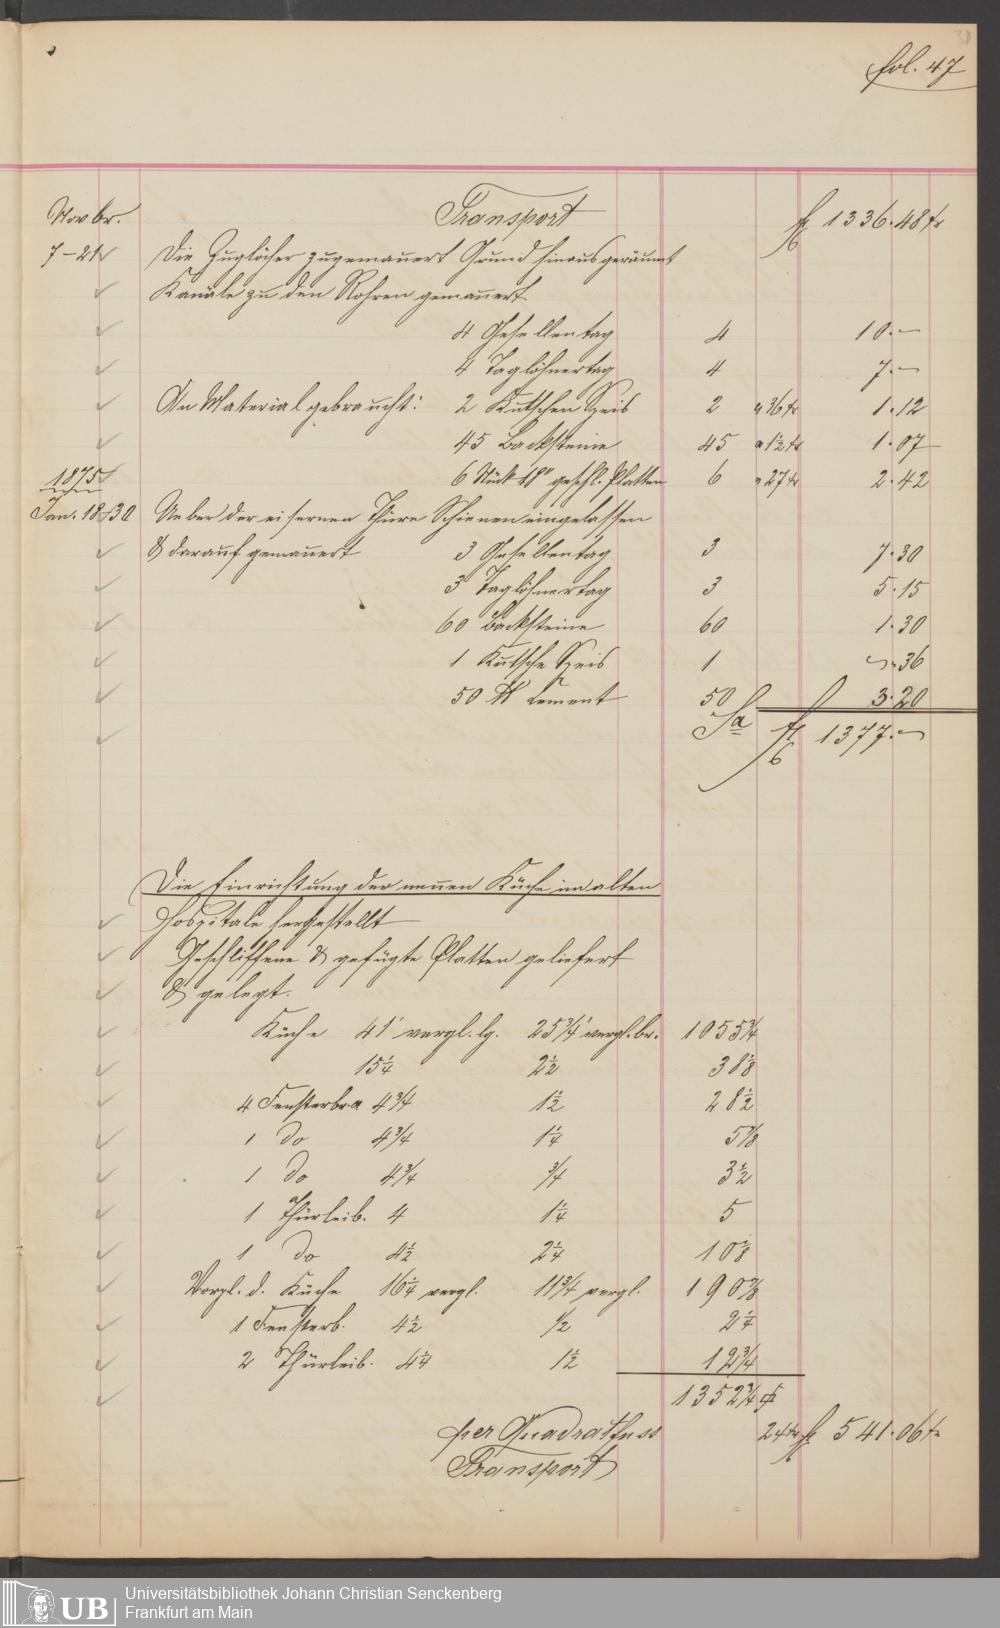 38
fol. 47
Novbr. Transport fl 1336.48 kr
7-21 Die Zuglöcher zugemauert Grund hinausgeräumt
Kanäle zu den Rohren gemauert
4 Gesellentag 4 10.—
4 Taglöhnertag 4 7.—
An Material gebraucht: 2 Kutschen Speis 2 a 36 kr 1.12
45 Backsteine 45 a 1½ kr 1.07
1875 6 Stück 18" geschl. Platten 6 a 27 kr 2.42
Jan. 18-30 Ueber der eisernen Thüre Schienen eingelassen
& darauf gemauert 3 Gesellentag 3 7.30
3 Taglöhnertag 3 5.15
60 Backsteine 60 1.30
1 Kutsche Speis 1 —.36
50 ℔ Cement 50 3.20
Sa fl 1377.—
Die Einrichtung der neuen Küche im alten
Hospitale hergestellt
Geschliffene & gefügte Platten geliefert
& gelegt.
Küche 41' vergl. lg. 25¾' vergl. br. 1055¾
15¼ 2½ 38⅛
4 Fensterbr. a 4¾ 1½ 28½
1 do 4¾ 1¼ 5⅞
1 do 4¾ ¾ 3½
1 Thürleib. 4 1¼ 5
1 do 4½ 2¼ 10⅛
Vorpl. d. Küche 16¼ vergl. 11¾ vergl. 190⅞
1 Fensterb. 4½ ½ 2¼
2 Thürleib. 4¼ 1½ 12¾
1352¾
per Quadratfuss 24 kr fl 541.06 kr
Transport
UB Universitätsbibliothek Johann Christian Senckenberg
Frankfurt am Main